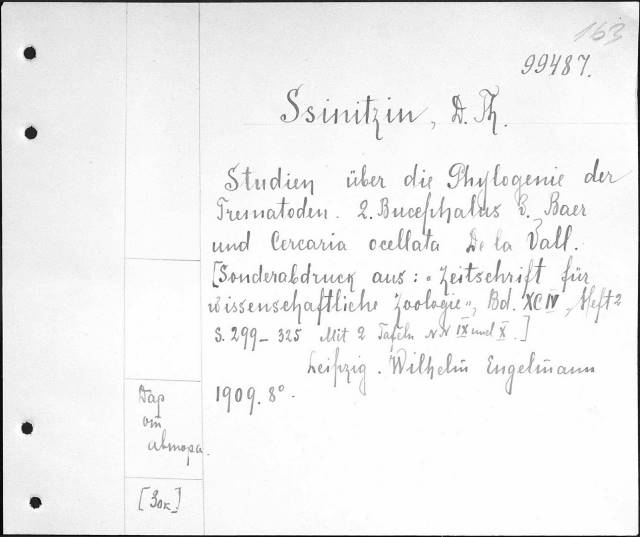 163
99487.
Ssinitzin, D. Th.
Studien über die Phylogenie der
Trematoden. 2. Bucephalus v. Baer
und Cercaria ocellata De la Vall.
[Sonderabdruck aus: "Zeitschrift für
wissenschaftliche Zoologie", Bd. XCIV, Heft 2
S. 299-325 Mit 2 Tafeln NN IX und X.]
Leipzig. Wilhelm Engelmann
1909. 8°.
Дар
от
автора.
[Зок.]